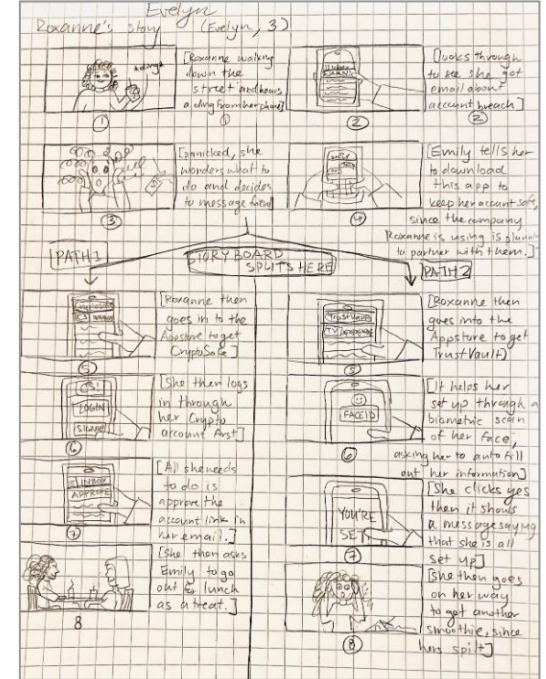 Evelyn
Roxanne's story (Evelyn, 3)
[Roxanne walking
down the
street and hears
a ding from her phone]
①
①
[looks through
to see she got
email about
account breach]
②
②
[panicked, she
wonders what to
do and decides
to message friend
③
[Emily tells her
to download
this app to
keep her account safe,
since the company
Roxanne is using is
to partner with them.]
④
STORYBOARD
SPLITS HERE
PATH 1
[Roxanne then
goes in to the
Appstore to get
CryptoSafe]
⑤
LOGIN
[She then logs
in through
her Crypto
account first]
⑥
INBOX
APPROVE
[All she needs
to do is
approve the
account link in
her email.]
⑦
[She then asks
Emily to go
out to lunch
as a treat.]
8
PATH 2
TrustVault
[Roxanne then
goes into the
Appstore to get
TrustVault]
⑤
FACE ID
[It helps her
set up through a
biometric scan
of her face,
asking her to auto fill
out her information]
⑥
YOU'RE
SET
[She clicks yes
then it shows
a message saying
that she is all
set up]
⑦
[She then goes
on her way
to get another
smoothie, since
hers spilt]
⑧